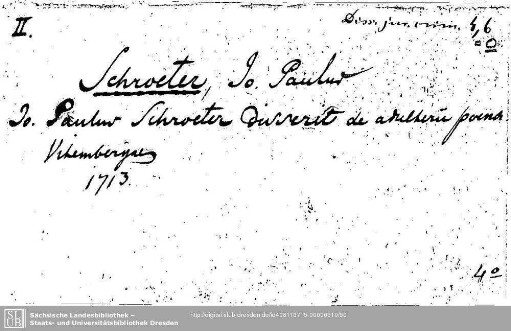 II.
Diss. jur. crim. 4,6
10
Schroeter, Jo. Paulus
Jo. Paulus Schroeter disserit de adulterii poena.
Vitembergae
1713.
4°
Sächsische Landesbibliothek –
Staats- und Universitätsbibliothek Dresden